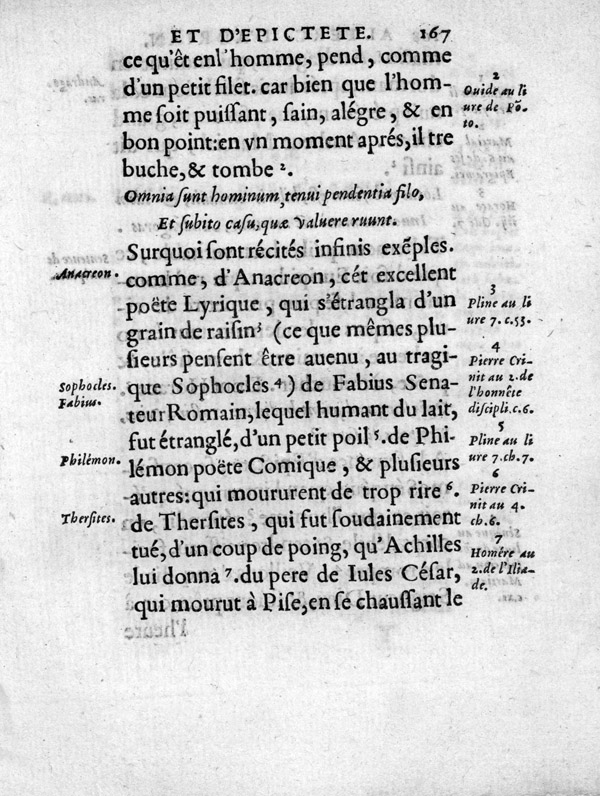 ET D'EPICTETE. 167
ce qu'êt enl'homme, pend, comme
d'un petit filet. car bien que l'hom-
me ſoit puiſſant, ſain, alégre, & en
bon point:en vn moment aprés,il tre
buche,& tombe ².
Omnia ſunt hominum, tenui pendentia filo,
Et ſubito caſu, quæ valuere ruunt.
Surquoi ſont récités infinis exẽples.
comme, d'Anacreon, cét excellent
poëte Lyrique, qui s'étrangla d'un
grain de raiſin³ (ce que mêmes plu-
ſieurs penſent être auenu, au tragi-
que Sophocles ⁴) de Fabius Sena-
teur Romain, lequel humant du lait,
fut étranglé, d'un petit poil ⁵. de Phi-
lémon poëte Comique, & pluſieurs
autres: qui moururent de trop rire ⁶.
de Therſites, qui fut ſoudainement
tué, d'un coup de poing, qu'Achilles
lui donna ⁷. du pere de Iules Céſar,
qui mourut à Piſe, en ſe chauſſant le
Anacreon.
Sophocles.
Fabius.
Philémon.
Therſites.
2
Ouide au li
ure de Põ-
to.
3
Pline au li
ure 7. c.53.
4
Pierre Cri-
nit au 2. de
l'honnête
diſcipli. c.6.
5
Pline au li
ure 7. ch.7.
6
Pierre Cri-
nit au 4.
ch.6.
7
Homére au
2. de l'Ilia-
de.